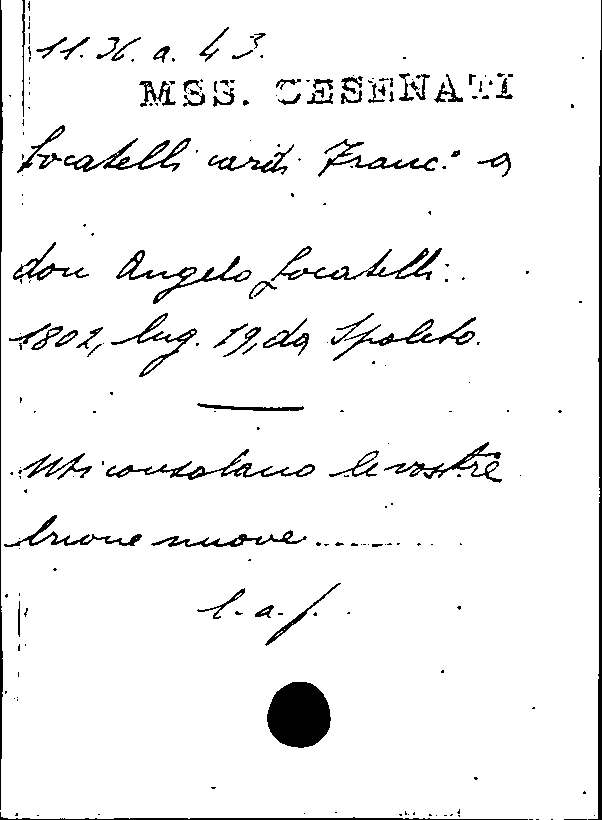 11.36. a. 43.
MSS. CESENATI
Locatelli card. Franc.º a
don Angelo Locatelli.
1802, lug. 19, da Spoleto.
Mi consolano le vostre
buone nuove ........
l. a. f.